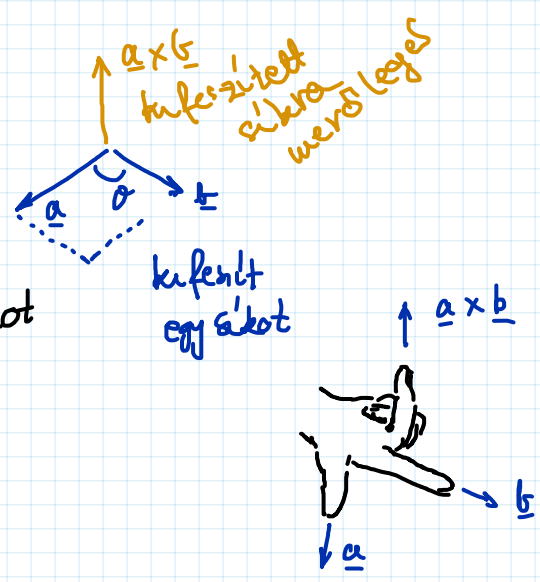 a × b
kifeszített
síkra
merőleges
a
θ
b
kifeszít
egy síkot
ot
a × b
b
a